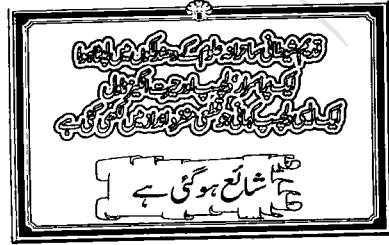 قدیم شیطانی ساحرانہ علوم کے دھندلکوں میں لپٹا ہوا
ایک پراسرار دلچسپ اور حیرت انگیز ناول
ایک ایسی دلچسپ کہانی جو قطعی منفرد انداز میں لکھی گئی ہے
شائع ہو گئی ہے